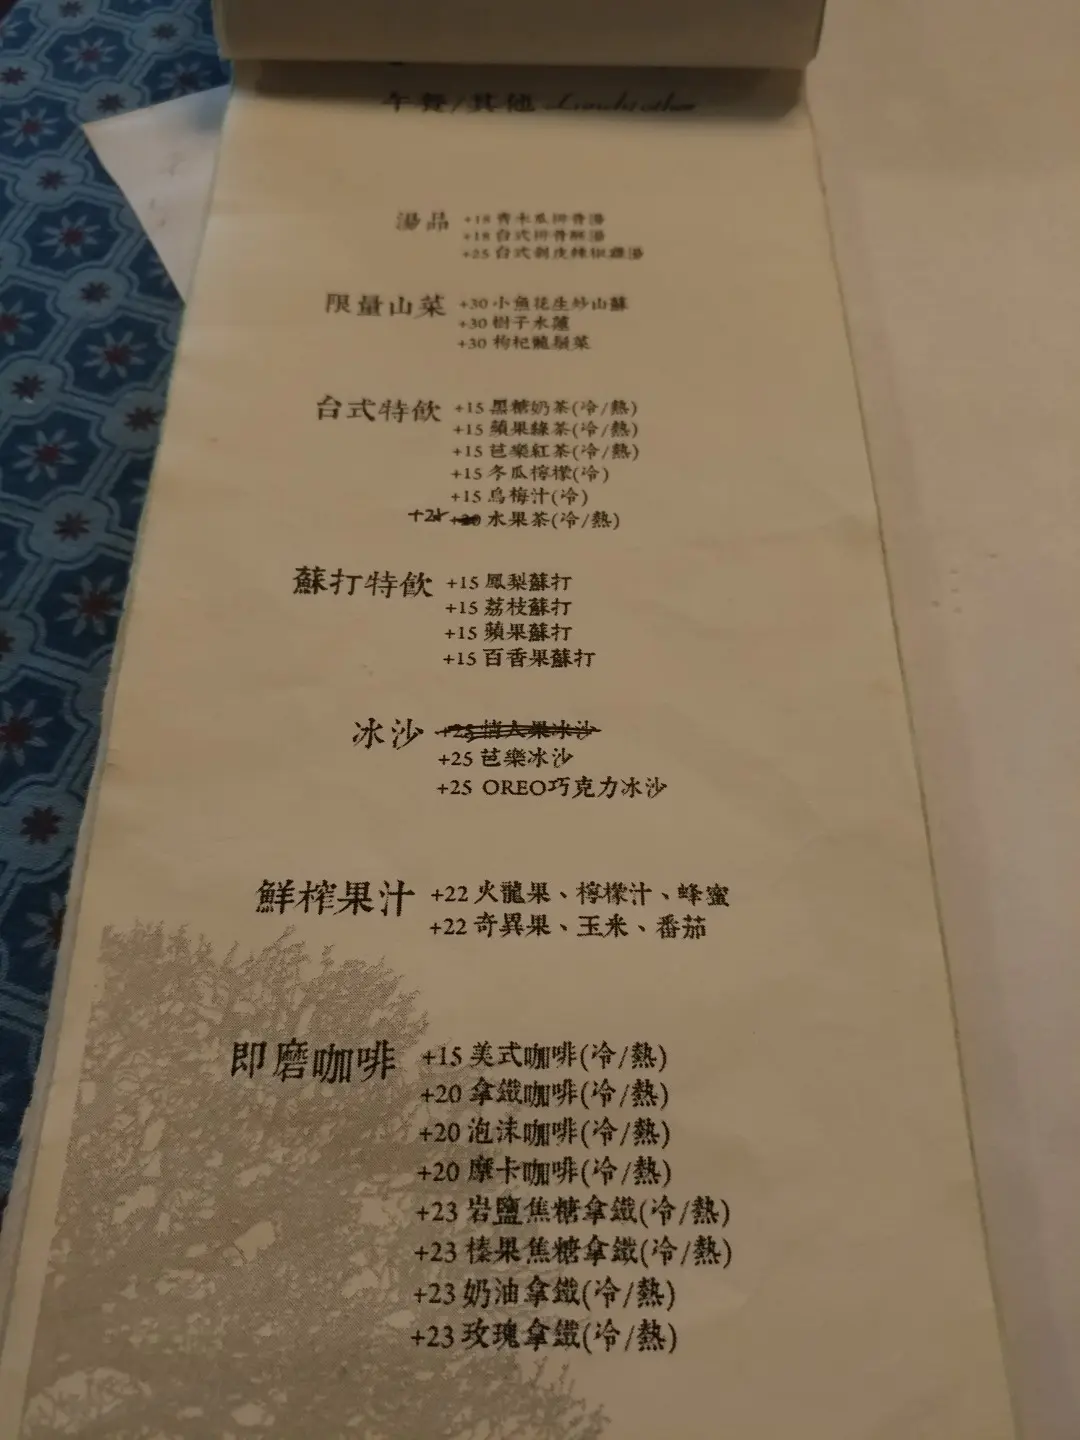 午餐/其他 Lunch/other
湯品 +18 青木瓜排骨湯
+18 台式排骨酥湯
+25 台式剝皮辣椒雞湯
限量山菜 +30 小魚花生炒山蘇
+30 樹子水蓮
+30 枸杞龍鬚菜
台式特飲 +15 黑糖奶茶(冷/熱)
+15 蘋果綠茶(冷/熱)
+15 芭樂紅茶(冷/熱)
+15 冬瓜檸檬(冷)
+15 烏梅汁(冷)
+20 水果茶(冷/熱)
蘇打特飲 +15 鳳梨蘇打
+15 荔枝蘇打
+15 蘋果蘇打
+15 百香果蘇打
冰沙 +25 情人果冰沙
+25 芭樂冰沙
+25 OREO巧克力冰沙
鮮榨果汁 +22 火龍果、檸檬汁、蜂蜜
+22 奇異果、玉米、番茄
即磨咖啡 +15 美式咖啡(冷/熱)
+20 拿鐵咖啡(冷/熱)
+20 泡沫咖啡(冷/熱)
+20 摩卡咖啡(冷/熱)
+23 岩鹽焦糖拿鐵(冷/熱)
+23 榛果焦糖拿鐵(冷/熱)
+23 奶油拿鐵(冷/熱)
+23 玫瑰拿鐵(冷/熱)